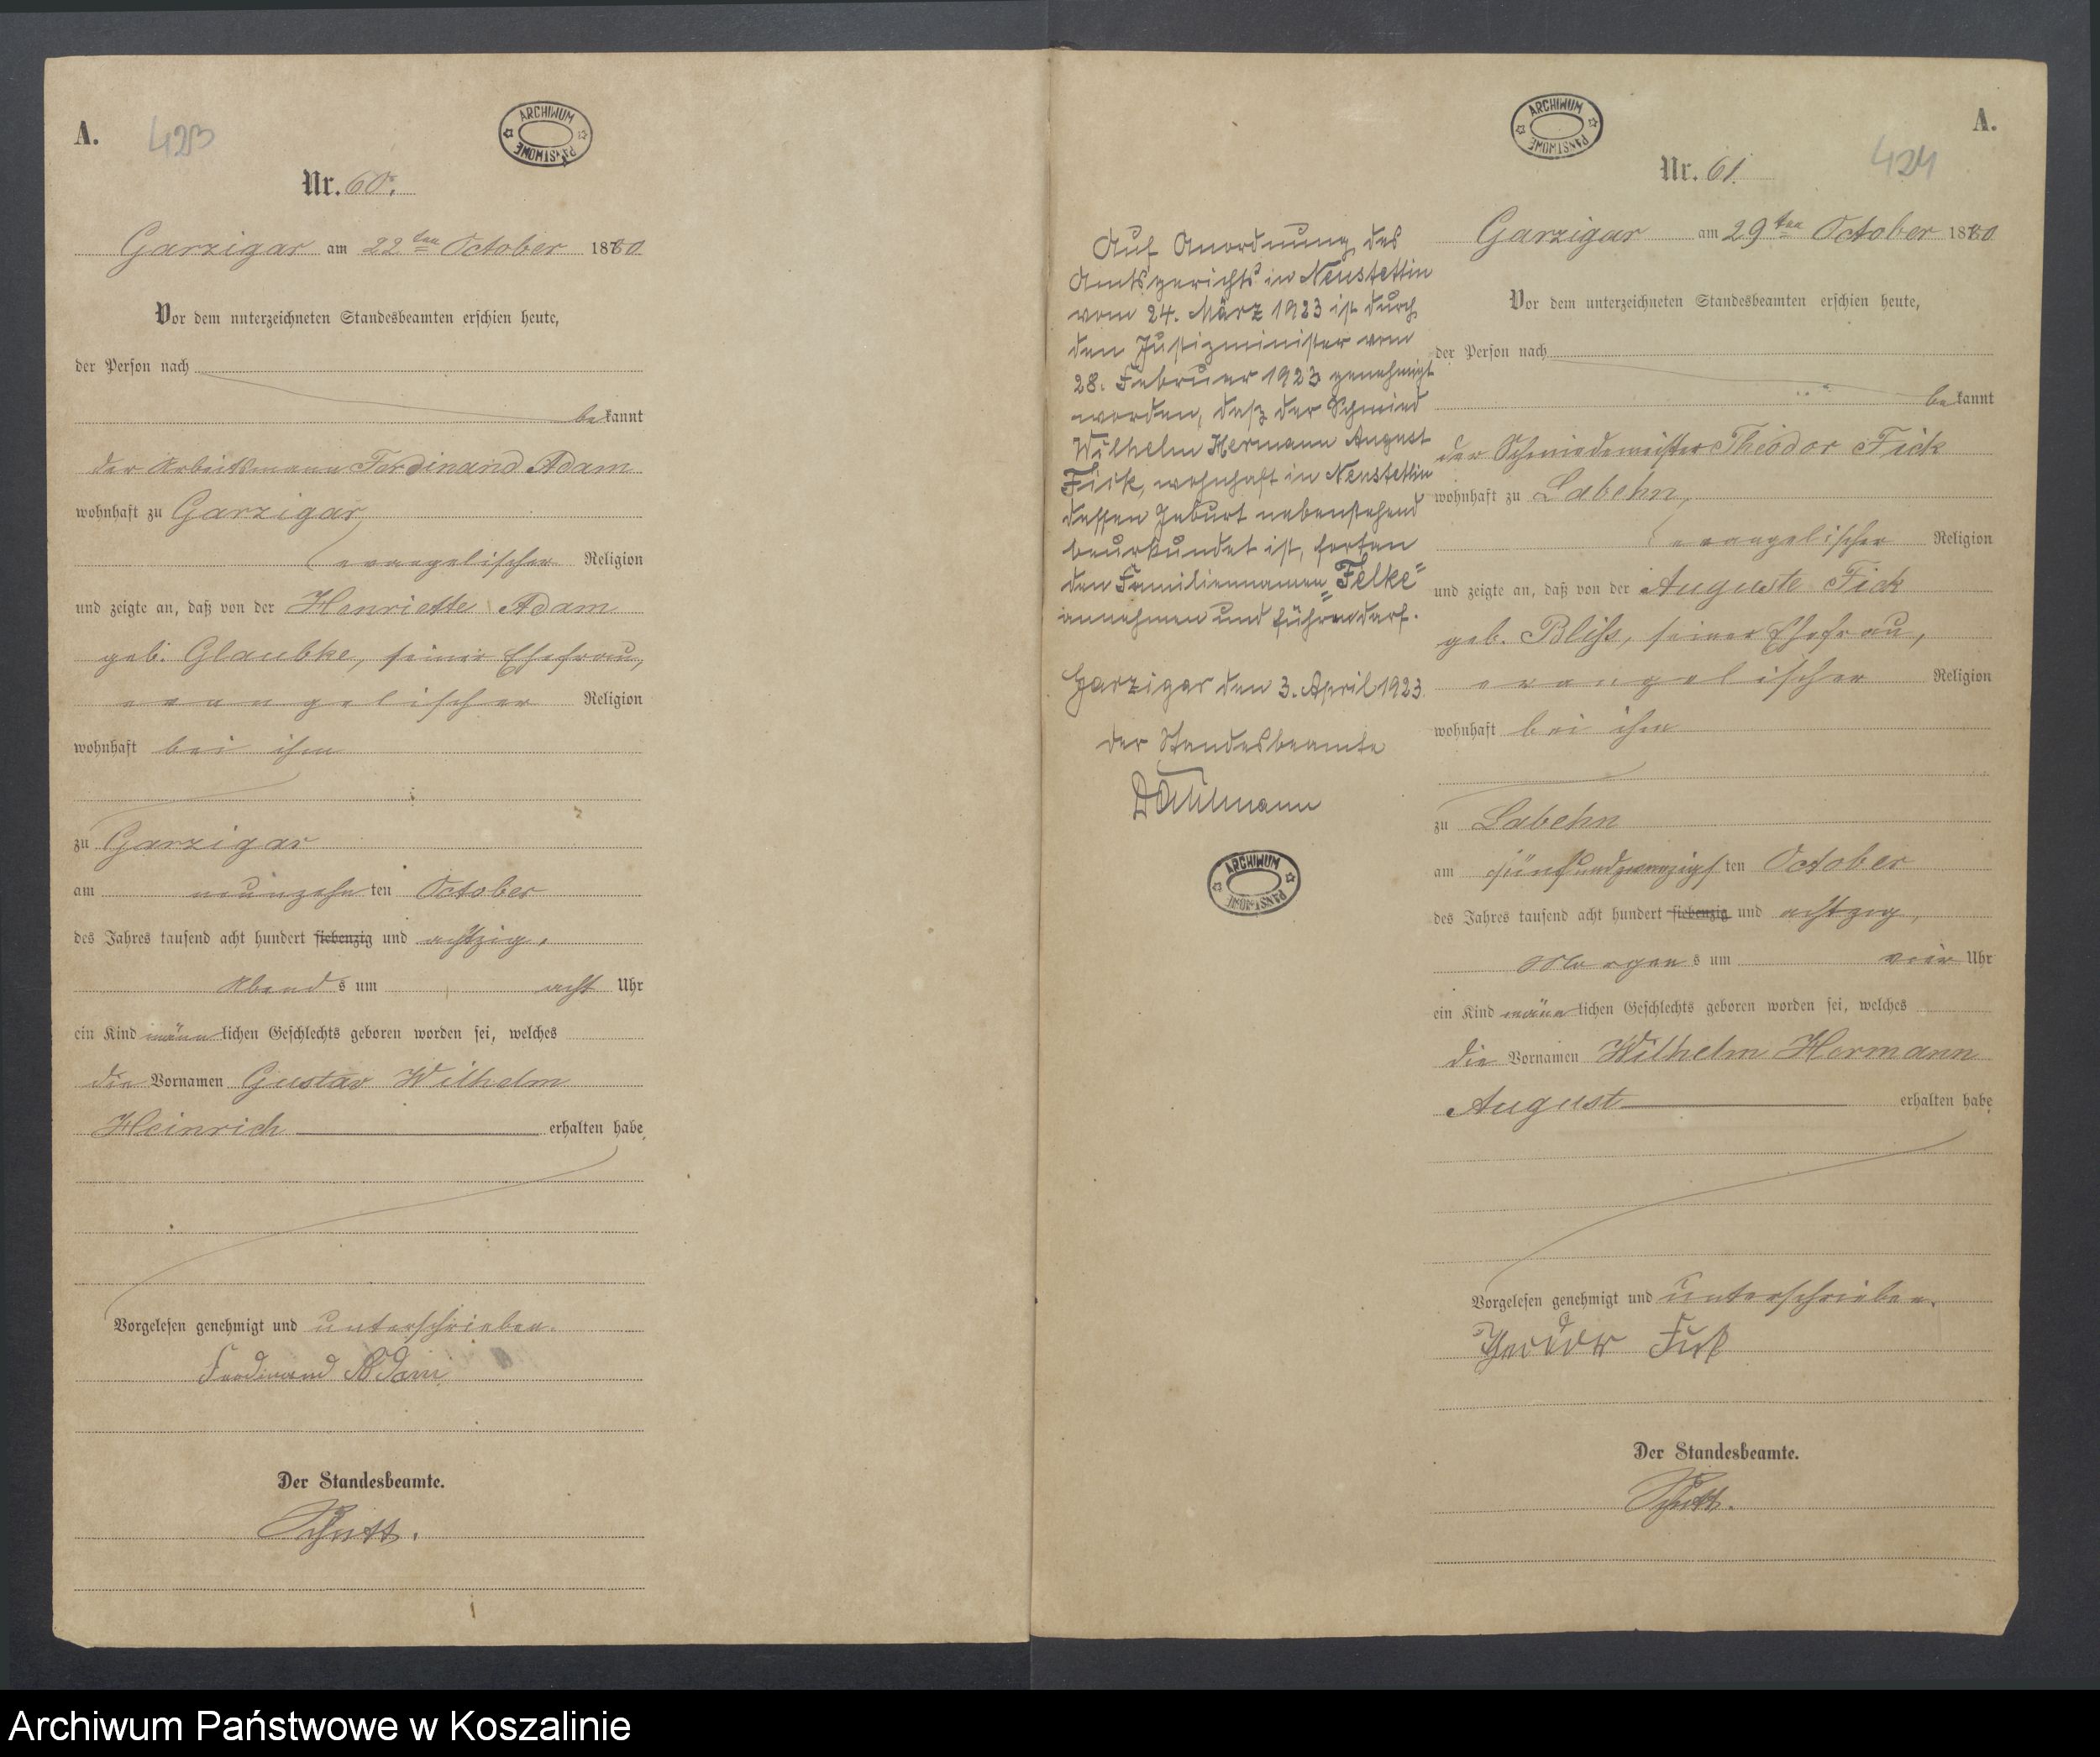 A.
423
ARCHIWUM PAŃSTWOWE
Nr. 60.
Garzigar am 22ten October 1880
Vor dem unterzeichneten Standesbeamten erschien heute,
der Person nach
bekannt
der Arbeitsmann Ferdinand Adam
wohnhaft zu Garzigar,
evangelischer Religion
und zeigte an, daß von der Henriette Adam
geb. Glaubke, seiner Ehefrau,
evangelischer Religion
wohnhaft bei ihm
zu Garzigar
am neunzehnten October
des Jahres tausend acht hundert siebenzig und achtzig,
Abends um acht Uhr
ein Kind männlichen Geschlechts geboren worden sei, welches
die Vornamen Gustav Wilhelm
Heinrich erhalten habe,
Vorgelesen genehmigt und unterschrieben.
Ferdinand Adam
Der Standesbeamte.
Schutt.
ARCHIWUM PAŃSTWOWE
A.
424
Nr. 61.
Auf Anordnung des
Amtsgerichts in Neustettin
vom 24. März 1923 ist durch
den Justizminister vom
28. Februar 1923 genehmigt
worden, daß der Schmied
Wilhelm Hermann August
Fick, wohnhaft in Neustettin
dessen Geburt nebenstehend
beurkundet ist, fortan
den Familiennamen „Felke“
annehmen und führen darf.
Garzigar den 3. April 1923.
Der Standesbeamte
ARCHIWUM PAŃSTWOWE
Garzigar am 29ten October 1880
Vor dem unterzeichneten Standesbeamten erschien heute,
der Person nach
bekannt
der Schmiedemeister Theodor Fick
wohnhaft zu Labehn,
evangelischer Religion
und zeigte an, daß von der Auguste Fick
geb. Bliss, seiner Ehefrau,
evangelischer Religion
wohnhaft bei ihm
zu Labehn
am fünfundzwanzigsten October
des Jahres tausend acht hundert siebenzig und achtzig,
Morgens um vier Uhr
ein Kind männlichen Geschlechts geboren worden sei, welches
die Vornamen Wilhelm Hermann
August erhalten habe
Vorgelesen genehmigt und unterschrieben.
Theodor Fick
Der Standesbeamte.
Schutt.
Archiwum Państwowe w Koszalinie